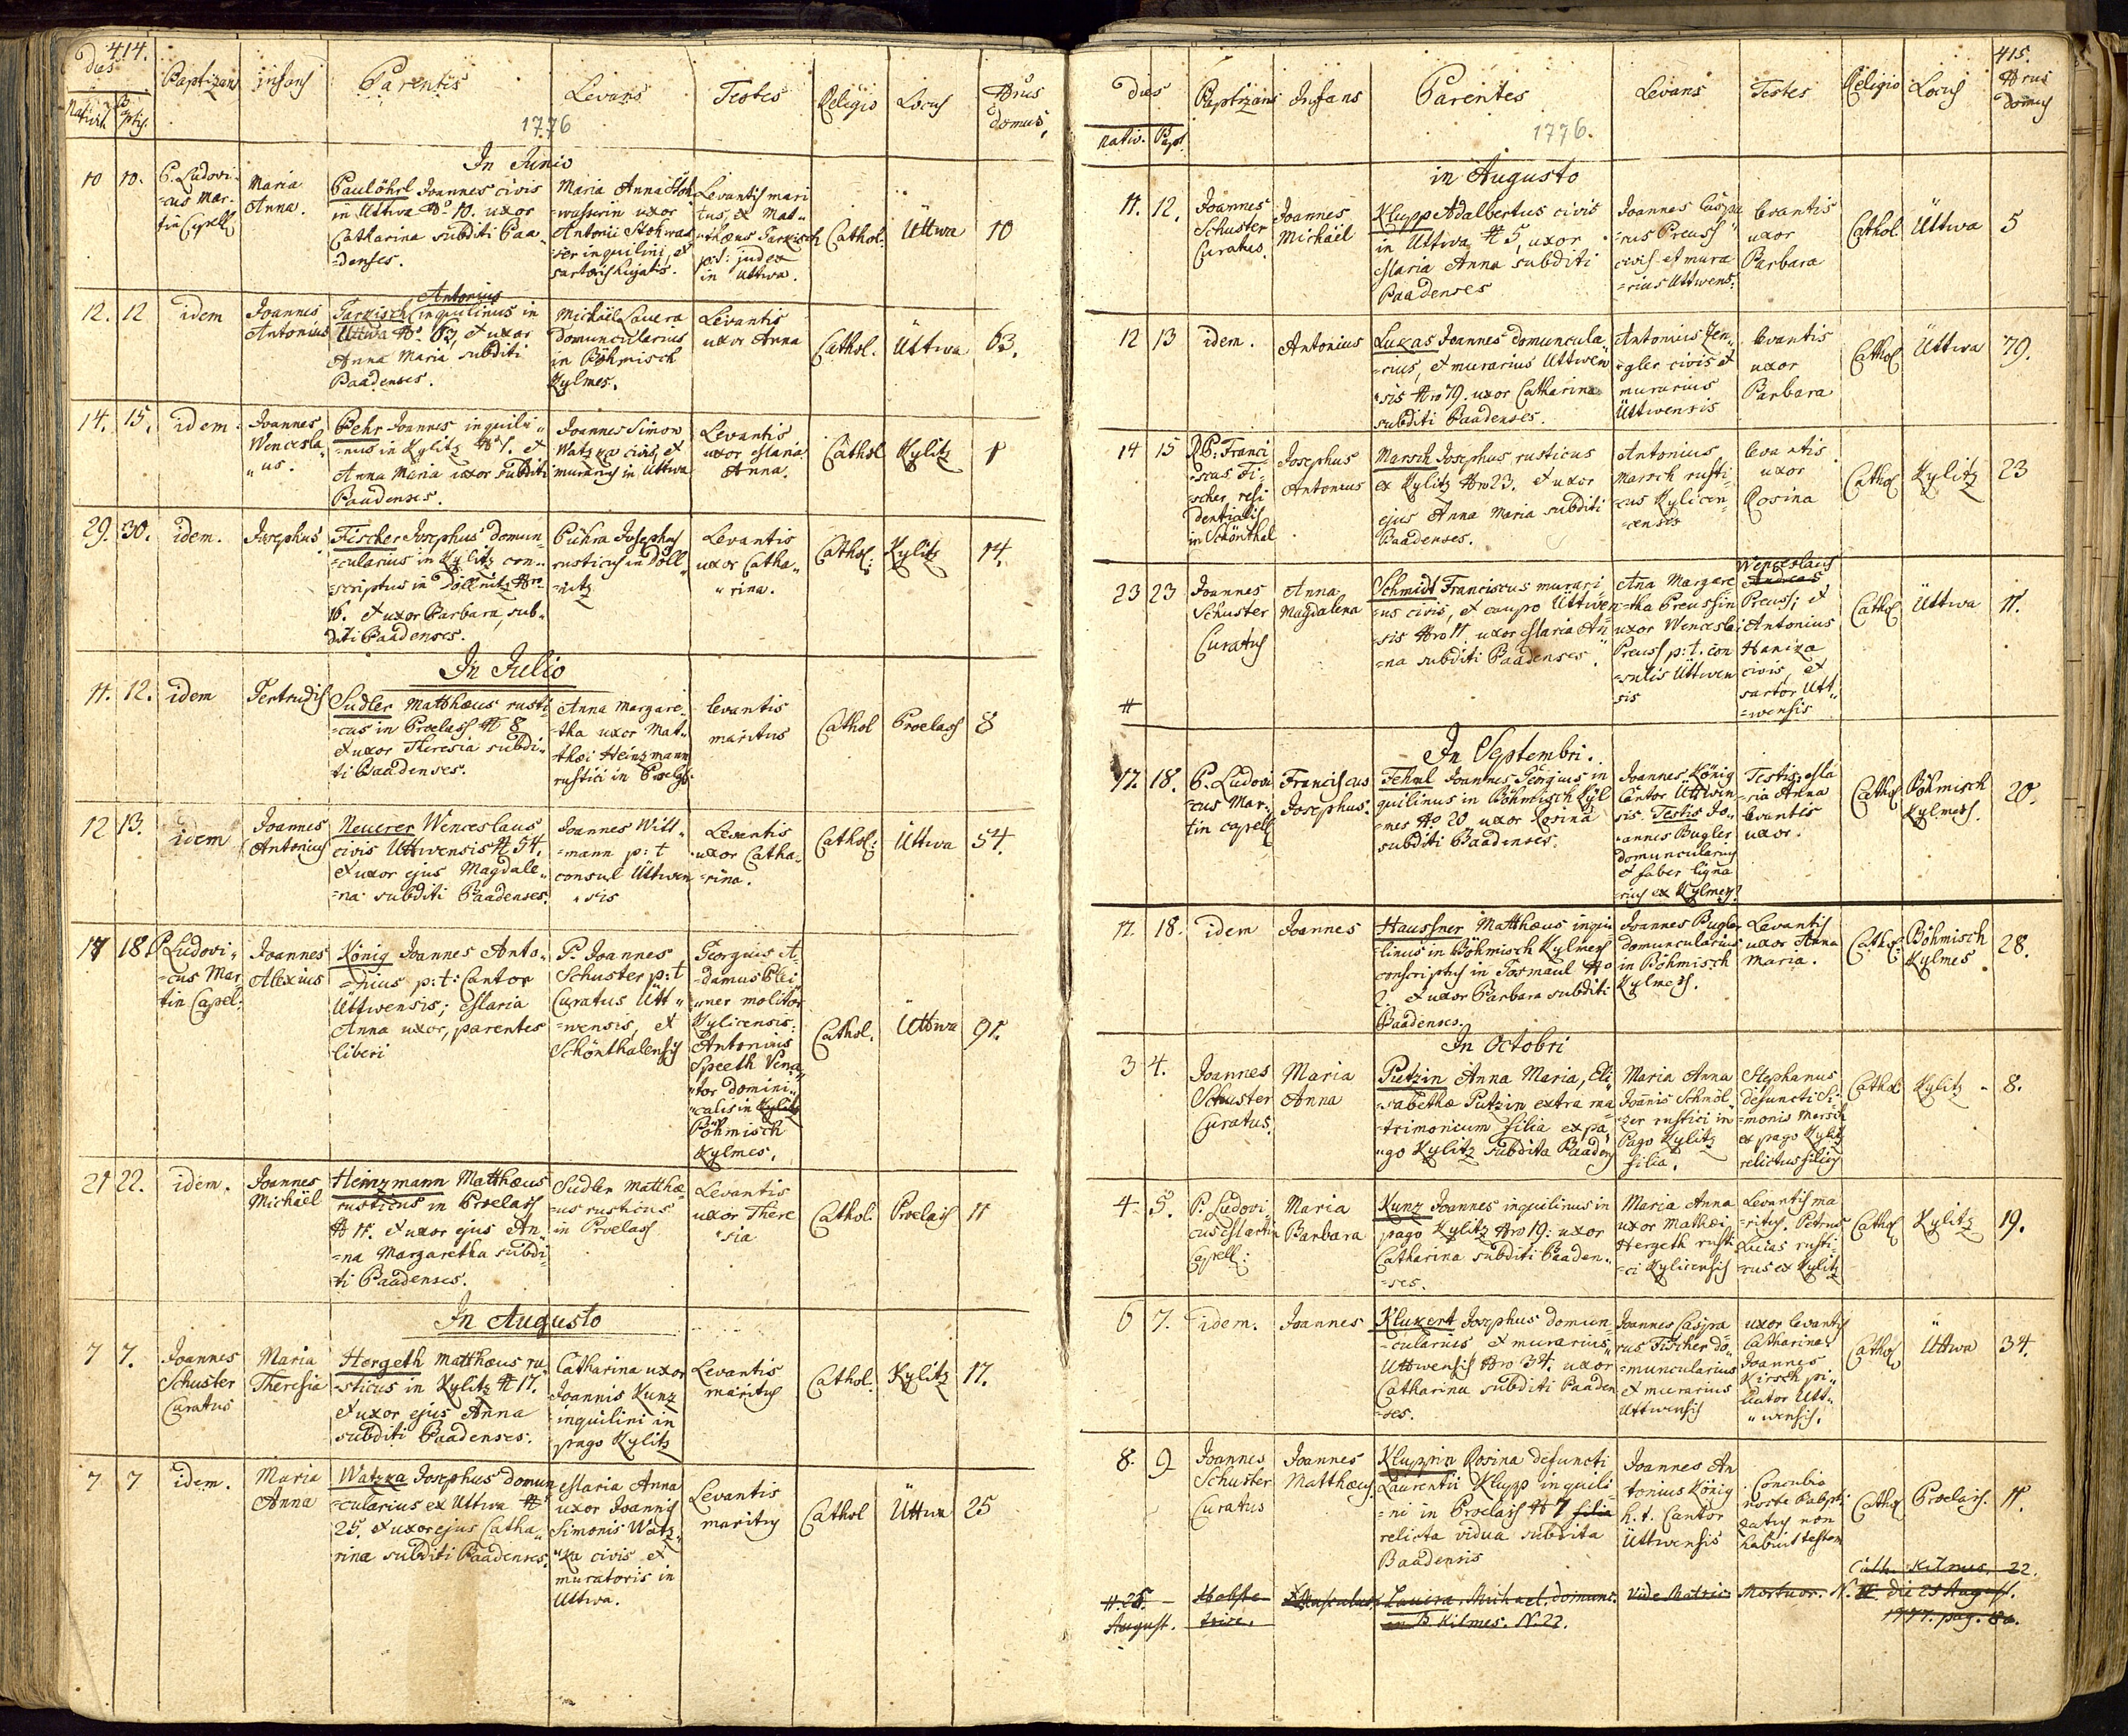 414.
dies
Nativit. Bptis.
Baptizans
Infans
Parentes
Levans
Testes
Religio
Locus
Nrus domus
1776
In Junio
10 10.
P. Ludovi-
-cus Mar-
tin Capell:
Maria
Anna.
Paulöhrl Joannes civis
in Uttwa No 10. uxor
Catharina subditi Baa-
-denses.
Maria Anna Stoh-
-wasserin uxor
Antonii Stohwas
ser inquilini, et
sartoris hujatis.
Levantis mari
tus, et Mat-
-thæus Tarkisch
p:t: judex
in Uttwa.
Cathol.
Üttwa
10
12. 12
idem
Joannes
Antonius
Antonius
Tarkisch inquilinus in
Uttwa No 63, et uxor
Anna Maria subditi
Baadenses.
Michäel Lauera
Domuncularius
in Böhmisch
Kylmes.
Levantis
uxor Anna
Cathol.
Üttwa
63.
14. 15.
idem.
Joannes
Wencesla
-us.
Behr Joannes inquili-
-nus in Kylitz No 1. et
Anna Maria uxor subditi
Baadenses.
Joannes Simon
Watzka civis, et
murarius in Uttwa
Levantis
uxor Maria
Anna.
Cathol
Kylitz
1
29. 30.
idem.
Josephus
Fischer Josephus domun-
-cularius in Kylitz con-
-scriptus in Döllnitz Nro
16. et uxor Barbara, sub-
diti Baadenses.
Pühra Josephus
rusticus in Döll-
-nitz
Levantis
uxor Catha-
-rina.
Cathol:
Kylitz
14.
In Julio
11. 12.
idem
Gertrudis
Sudler Matthæus rusti-
-cus in Proelass N 8
et uxor Theresia subdi-
ti Baadenses.
Anna Margare-
-tha uxor Mat-
thæi Heinzmann
rustici in Proelass.
levantis
maritus
Cathol
Proelass
8
12 13.
idem
Joannes
Antonius
Neuerer Wenceslaus
civis Uttwensis N 54.
et uxor ejus Magdale-
-na subditi Baadenses.
Joannes Witt-
-mann p:t
consul Uttwen
-sis
Levantis
uxor Catha-
-rina.
Cathol:
Uttwa
54.
17 18.
P. Ludovi-
-cus Mar
tin Capel:
Joannes
Alexius
König Joannes Anto-
-nius p:t: Cantor
Uttwensis; Maria
Anna uxor, parentes
liberi
P. Joannes
Schuster p:t
Curatus Ütt-
-wensis, et
Schönthalensis
Georgius A-
-damus Blei-
-ner molitor
Kylicensis:
Antonius
Speeth Vena-
-tor domini-
-calis in Kylitz
Böhmisch
Kylmes.
Cathol.
Üttwa
91.
21 22.
idem.
Joannes
Michäel
Heinzmann Matthæus
rusticus in Proelass
N 11. et uxor ejus An-
-na Margaretha subdi-
ti Baadenses.
Sudler Matthæ-
-us rusticus
in Proelass
Levantis
uxor There
-sia
Cathol.
Proelass
11
In Augusto
7 7.
Joannes
Schuster
Curatus
Maria
Theresia
Hergeth Matthæus ru-
-sticus in Kylitz N 17.
et uxor ejus Anna
subditi Baadenses.
Catharina uxor
Joannis Kunz
inquilini in
pago Kylitz
Levantis
maritus
Cathol.
Kylitz
17.
7 7
idem.
Maria
Anna
Watzka Josephus domun
-cularius ex Uttwa No
25. et uxor ejus Catha-
rina subditi Baadenses.
Maria Anna
uxor Joannis
Simonis Watz-
-ka civis et
muratoris in
Uttwa.
Levantis
maritus
Cathol
Üttwa
25
415.
Dies
nativ. Bapt.
Baptizans
Infans
Parentes
Levans
Testes
Religio
Locus
Nrus
Domus
1776.
in Augusto
11. 12.
Joannes
Schuster
Curatus.
Joannes
Michäel
Klupp Adalbertus civis
in Uttwa N 5, uxor
Maria Anna subditi
Baadenses
Joannes Caspa
-rus Preuss
civis et mura
-rius Uttwens:
levantis
uxor
Barbara
Cathol.
Üttwa
5
12 13
idem.
Antonius
Lukas Joannes domuncula
-rius, et murarius Uttwen
-sis Nro 79. uxor Catharina
subditi Baadenses.
Antonius Zen-
-gler civis et
murarius
Üttwensis
levantis
uxor
Barbara
Cathol
Üttwa
79.
14 15
R.P. Franci-
-scus Fi-
-scher resi-
dentialis
in Schönthal
Josephus
Antonius
Marsch Josephus rusticus
ex Kylitz Nro 23. et uxor
ejus Anna Maria subditi
Baadenses.
Antonius
Marsch rusti-
-cus Kylicen-
-censis
levantis
uxor
Rosina
Cathol
Kylitz
23
23 23
Joannes
Schuster
Curatus
Anna
Magdalena
Schmidt Franciscus murari-
-us civis, et caupo Üttwen-
sis Nro 11. uxor Maria An-
-na subditi Baadenses.
Ana Margare
-tha Preussin
uxor Wenceslai
Preuss p:t. con
-sulis Üttwen
sis
Wenceslaus
Andreas
Preuss; et
Antonius
Hanika
civis, et
sartor Utt-
-wensis
Cathol
Üttwa
11.
#
In Septembri.
17. 18.
P. Ludovi
-cus Mar-
tin capell
Franciscus
Josephus.
Fehnl Joannes Georgius in
quilinus in Böhmisch Kyl
mes No 20 uxor Rosina
subditi Baadenses.
Joannes König
Cantor Üttwen
sis. Testis Jo-
-annes Bugler
domuncularius
et faber ligna
-rius ex Kylmes.
Testis, Ma
-ria Anna
levantis
uxor.
Cathol
Böhmisch
Kylmess.
20.
17. 18.
idem
Joannes
Haussner Matthæus inqui
-linus in Böhmisch Kylmes
conscriptus in Tosmaul No
2. et uxor Barbara subditi
Baadenses.
Joannes Bugler
domuncularius
in Böhmisch
Kylmess.
Levantis
uxor Anna
Maria.
Cathol:
Böhmisch
Kylmes
28.
In Octobri
3 4.
Joannes
Schuster
Curatus.
Maria
Anna
Putzin Anna Maria, Eli-
-sabethæ Putzin extra ma
-trimonium filia ex pa-
-go Kylitz subdita Baadens
Maria Anna
Joannis Schmöl-
-zer rustici in
Pago Kylitz
filia.
Stephanus
defuncti Si-
-monis Marsch
ex pago Kylitz
relictus filius
Cathol
Kylitz
8.
4. 5.
P. Ludovi
cus Martin
Capell:
Maria
Barbara
Kunz Joannes inquilinus in
pago Kylitz Nro 19: uxor
Catharina subditi Baaden-
-ses.
Maria Anna
uxor Mathæi
Hergeth rusti
-ci Kylicensis
Levantis ma
-ritus. Petrus
Lucas rusti-
-cus ex Kylitz
Cathol
Kylitz
19.
6 7.
idem.
Joannes
Klukert Josephus domun
-cularius et murarius
Uttwensis Nro 34. uxor
Catharina subditi Baaden
-ses.
Joannes Caspa
rus Fischer do-
-muncularius
et murarius
Uttwensis
uxor levantis
Catharina
Joannes
Kirsch pi-
-stor Utt-
-wensis.
Cathol
Üttwa
34.
8. 9
Joannes
Schuster
Curatus
Joannes
Matthæus
Kluppin Rosina defuncti
Laurentii Klupp inquili-
-ni in Proelass N 7 filia
relicta vidua subdita
Baadensis
Joannes An
tonius König
h.t. Cantor
Üttwensis
nocte Babpti-
zatus non
habuit testem
Cathol
Proelass.
11.
25
August.
Obste-
trice.
Lauera Michael. domunc.
in B. Kilmes. N. 22.
Vide Matric
Mortuor.
Cath. Kilmes, 22.
die 25 August.
1777. pag.